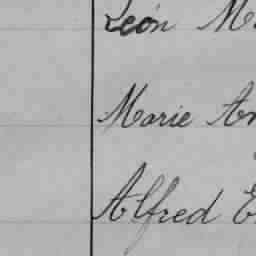 Léon M
Marie An
Alfred E